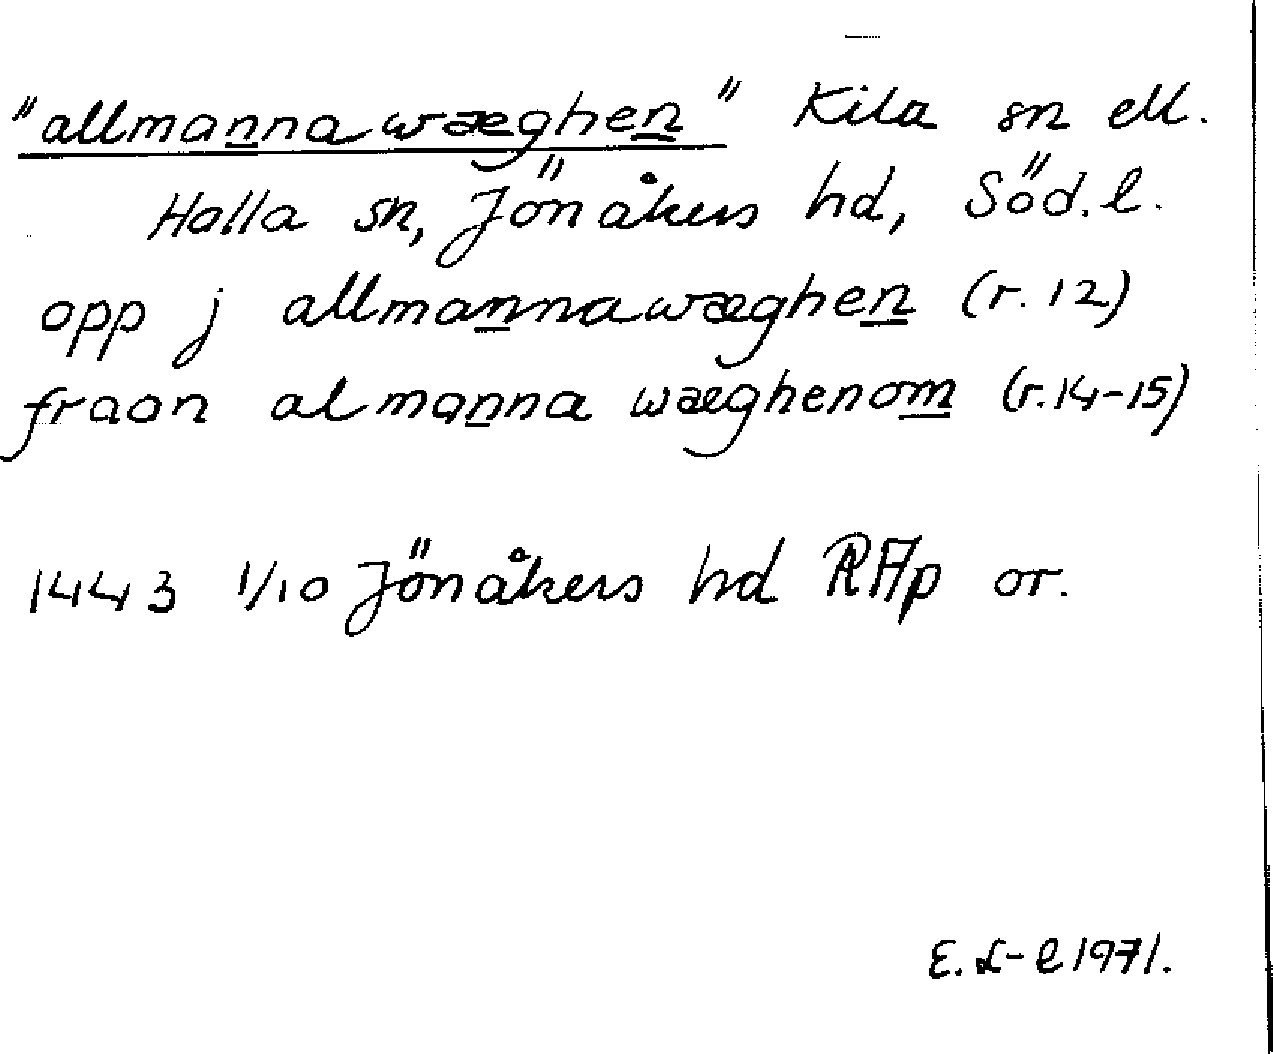 "allmannawæghen" Kila sn ell.
Halla sn, Jönåkers hd, Söd. l.
opp j allmannawæghen (r. 12)
fraan almanna wæghenom (r. 14-15)
1443 1/10 Jönåkers hd RAp or.
E. L-l 1971.